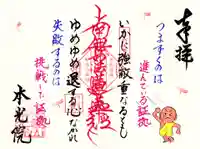 奉拝
つまずくのは
進んでいる証拠
南無妙法蓮華経
いかに強敵重なるとも
ゆめゆめ退する心なかれ
失敗するのは
挑戦している証拠
本光院